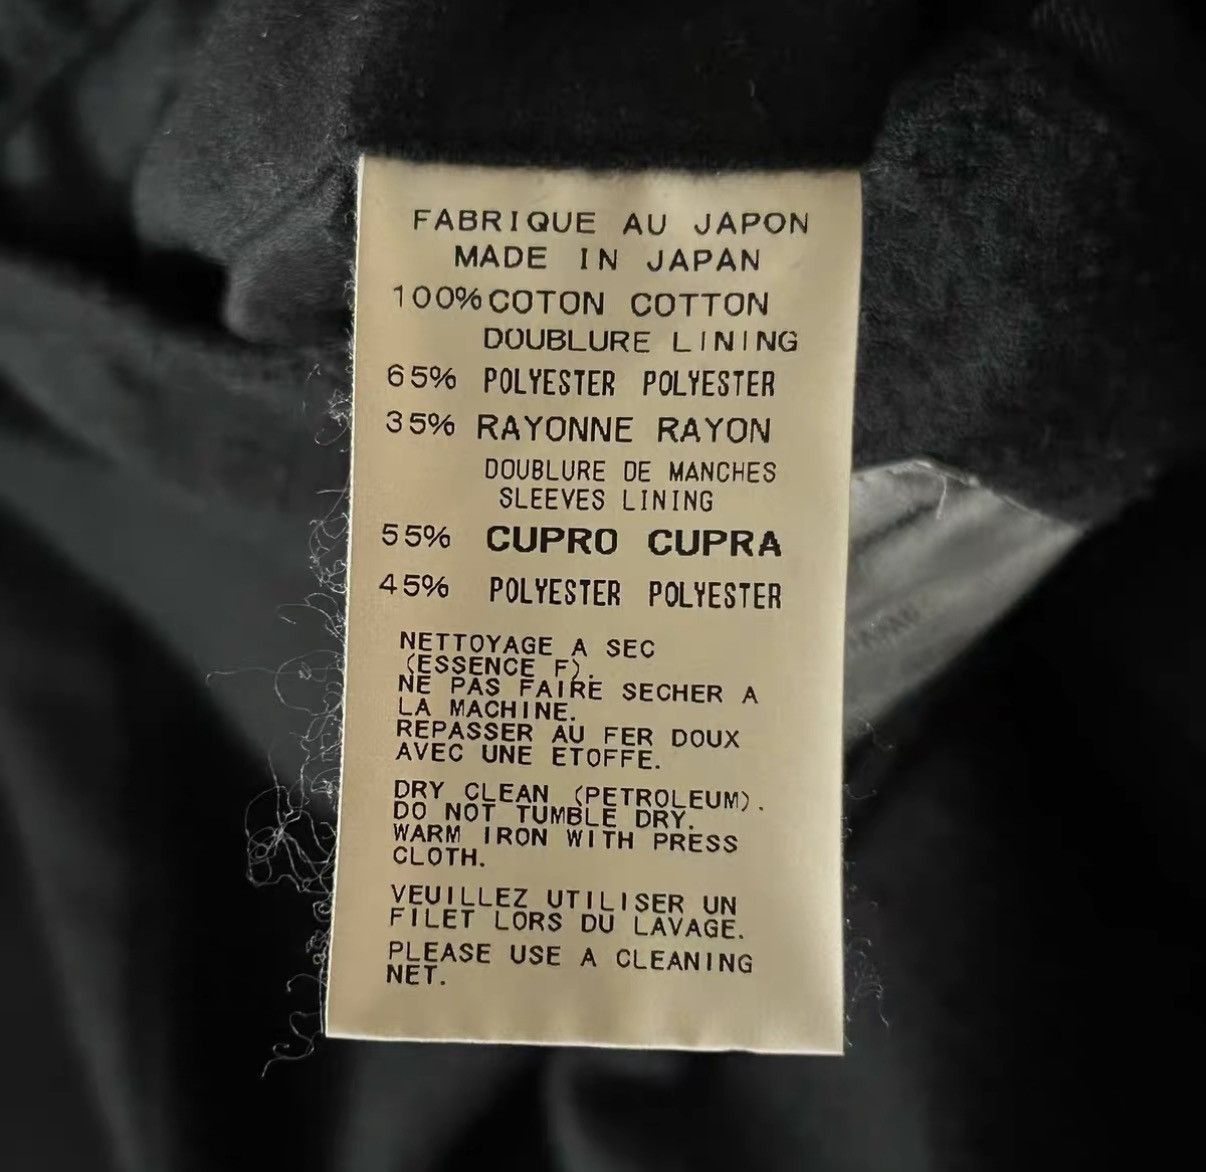 FABRIQUE AU JAPON
MADE IN JAPAN
100% COTON COTTON
DOUBLURE LINING
65% POLYESTER POLYESTER
35% RAYONNE RAYON
DOUBLURE DE MANCHES
SLEEVES LINING
55% CUPRO CUPRA
45% POLYESTER POLYESTER
NETTOYAGE A SEC
(ESSENCE F).
NE PAS FAIRE SECHER A
LA MACHINE.
REPASSER AU FER DOUX
AVEC UNE ETOFFE.
DRY CLEAN (PETROLEUM).
DO NOT TUMBLE DRY.
WARM IRON WITH PRESS
CLOTH.
VEUILLEZ UTILISER UN
FILET LORS DU LAVAGE.
PLEASE USE A CLEANING
NET.